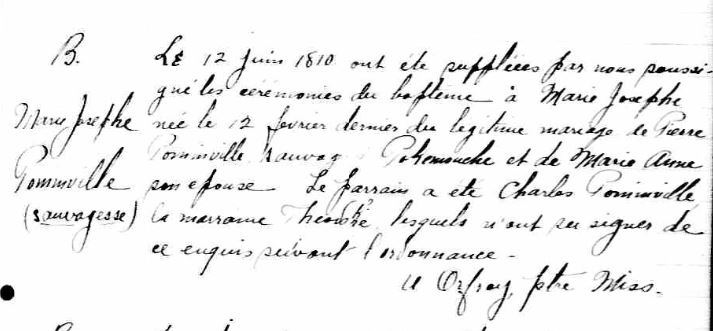 B. Le 12 juin 1810 ont été suppléées par nous soussi-
gné les cérémonies du baptême à Marie Josephe
Marie Josephe née le 12 fevrier dernier du legitime mariage de Pierre
Pominville sauvage Pokemouche et de Marie Anne
Pominville son epouse. Le parrain a été Charles Pominville
(sauvagesse) la marraine lesquels n'ont su signer de
ce enquis suivant l'ordonnance.
U Orfroy, ptre Miss.